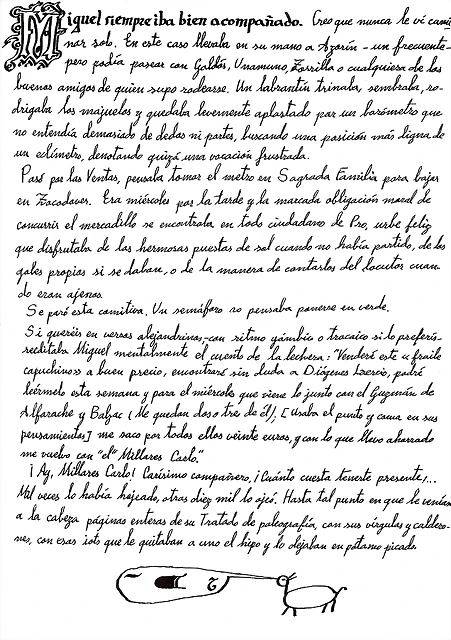 Miguel siempre iba bien acompañado. Creo que nunca le vi cami
nar solo. En este caso llevaba en su mano a Azorín - un frecuente -
pero podía pasear con Galdós, Unamuno, Zorrilla o cualquiera de los
buenos amigos de quien supo rodearse. Un labrantín trinaba, sembraba, ro-
drigaba los majuelos y quedaba levemente aplastado por un barómetro que
no entendía demasiado de dedos ni partes, buscando una posición más digna de
un eclímetro, denotando quizá una vocación frustrada.
Pasó por las Ventas, pensaba tomar el metro en Sagrada Familia para bajar
en Zocodover. Era miércoles por la tarde y la marcada obligación moral de
concurrir el mercadillo se encontraba en todo ciudadano de Pro, urbe feliz
que disfrutaba de las hermosas puestas de sol cuando no había partido, de los
goles propios si se daban, o de la manera de cantarlos del locutor cuan
do eran ajenos.
Se paró esta comitiva. Un semáforo no pensaba ponerse en verde.
Si queréis en versos alejandrinos - con ritmo yámbico o trocaico si lo preferís -
recitaba Miguel mentalmente el cuento de la lechera: "Venderé este a fraile
capuchino a buen precio, encontraré sin duda a Diógenes Laercio, podré
leérmelo esta semana y para el miércoles que viene lo junto con el Guzmán de
Alfarache y Balzac (Me quedan dos o tres de él); [Usaba el punto y coma en sus
pensamientos] me saco por todos ellos veinte euros, y con lo que llevo ahorrado
me vuelvo con "el" Millares Carlo."
¡Ay, Millares Carlo! Carísimo compañero, ¡Cuánto cuesta tenerte presente!...
Mil veces lo había hojeado, otras diez mil lo ojeó. Hasta tal punto en que le venían
a la cabeza páginas enteras de su Tratado de paleografía, con sus vírgulas y caldero-
nes, con esas iots que le quitaban a uno el hipo y lo dejaban en pótamo picado.